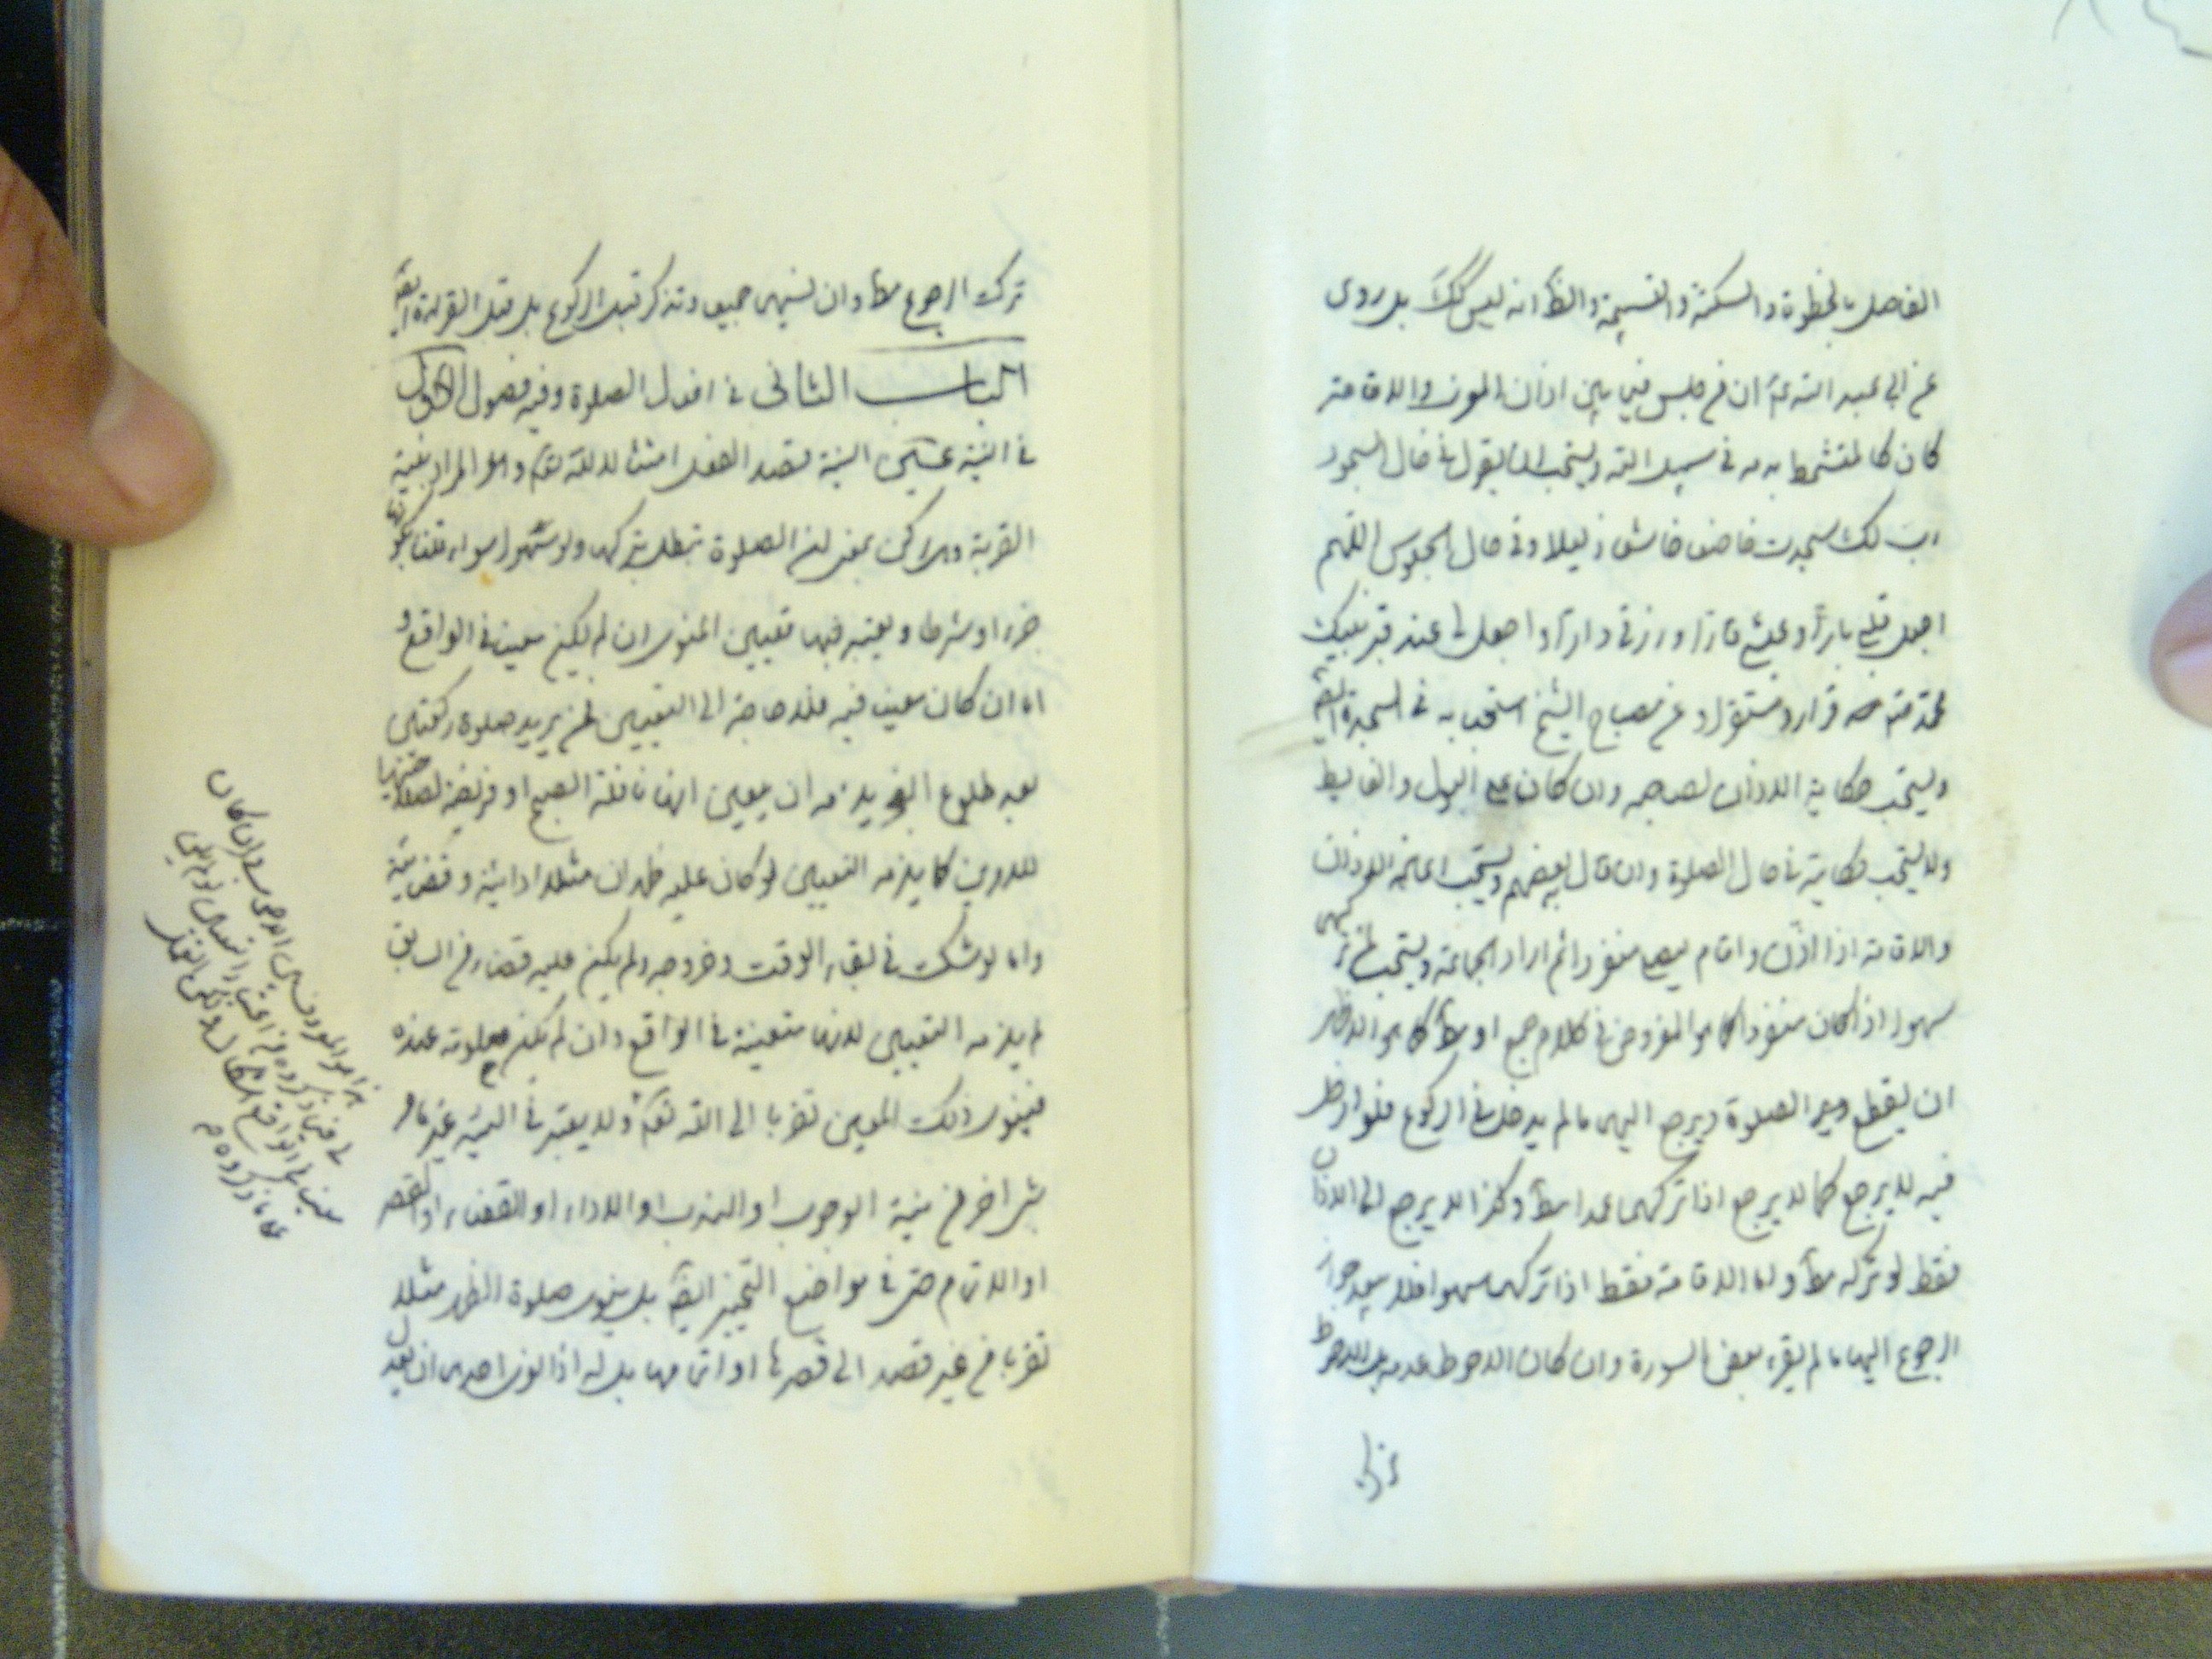 الفاصل بالخطوة والسكتة والتسبيحة والظ انه ليس كك بل روى
عن ابى عبد الله ع ان من جلس فيما بين اذان المغرب والاقامة
كان كالمتشحط بدمه فى سبيل الله ويستحب ان يقول فى حال السجود
رب لك سجدت خاضعا خاشعا ذليلا وفى حال الجلوس اللهم
اجعل قلبى بارا وعيشى قارا ورزقى دارا واجعل لى عند قبر نبيك
محمد ص قرارا ومستقرا وعن مصباح الشيخ استحبابه فى السجدة ايضا
ويستحب حكاية الاذان لصاحبه وان كان على البول والغايط
ولا يستحب حكايته فى حال الصلوة وان قال بعضهم ويستحب اعادة الاذان
والاقامة اذا اذن واقام ليصلى منفردا ثم اراد الجماعة ويستحب لمن تركهما
سهوا اذا كان منفردا كما هو المفروض فى كلام جمع او مط كما هو الاظهر
ان يقطع الصلوة ويرجع اليهما ما لم يدخل فى الركوع فلو دخل
فيه لا يرجع كما لا يرجع اذا تركهما عمدا مط وكذا لا يرجع الى الاذان
فقط لو تركه مط واما الاقامة فقط اذا تركها سهوا فلا يبعد جواز
الرجوع اليها ما لم يقرء بعض السورة وان كان الاحوط عدمه بل الاحوط
ترك
ترك الرجوع مط وان نسيهما جميعا وتذكر قبل الركوع بل قبل القراءة ايضا
الباب الثانى فى افعال الصلوة وفيه فصول الاول
فى النية النية قصد الفعل امتثالا لله تعالى وهو المراد بنية
القربة وهى ركن بمعنى ان الصلوة تبطل بتركها ولو سهوا سواء قلنا بكونها
جزءا او شرطا ويعتبر فيها تعيين المنوى ان لم يكن معينا فى الواقع و
اما ان كان معينا فيه فلا حاجة الى التعيين فمن يريد صلوة ركعتين
بعد طلوع الفجر يلزمه ان يعين انها نافلة الصبح او فريضة
للاولين كما يلزمه التعيين لو كان عليه ظهران مثلا ادائية وقضائية
واما لو شك فى بقاء الوقت وخروجه ولم يكن عليه قضاء من السابق
لم يلزمه التعيين لانها متعينة فى الواقع وان لم تكن معلومة عنده
فينوى ذلك المعين تقربا الى الله تعالى ولا يعتبر فى النية غير ما مر
شىء اخر من نية الوجوب او الندب او الاداء او القضاء او القصر
او الاتمام حتى فى مواضع التخيير ايضا بل ينوى صلوة الظهر مثلا
تقربا من غير قصد الى قصرها او اتمامها بل له اذا نوى احدهما ان يعدل